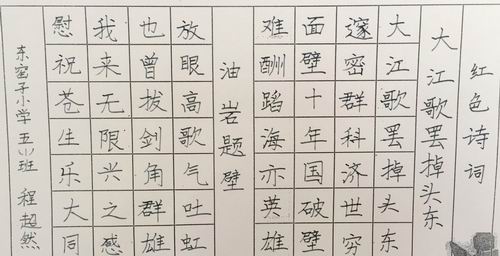 红色诗词
大江歌罢掉头东
大江歌罢掉头东
邃密群科济世穷
面壁十年国破壁
难酬蹈海亦英雄
油岩题壁
放眼高歌气吐虹
也曾拔剑角群雄
我来无限兴之感
慰祝苍生乐大同
东窑子小学 五(1)班 程超然